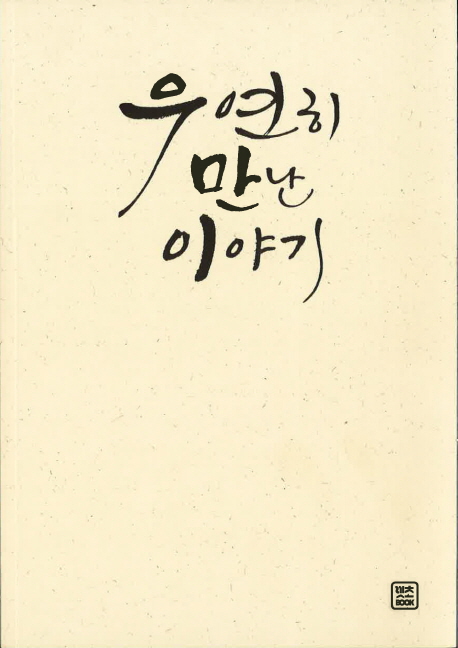 우연히
만난
이야기
BOOK